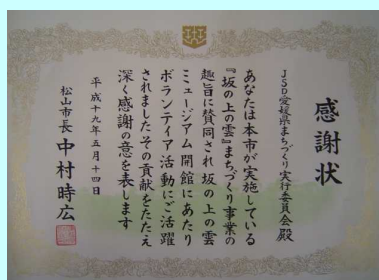 感謝状
JSD愛媛県まちづくり実行委員会殿
あなたは本市が実施している
『坂の上の雲』まちづくり事業の
趣旨に賛同され坂の上の雲
ミュージアム開館にあたり
ボランティア活動にご活躍
されましたその貢献をたたえ
深く感謝の意を表します
平成十九年五月十四日
松山市長 中村時広